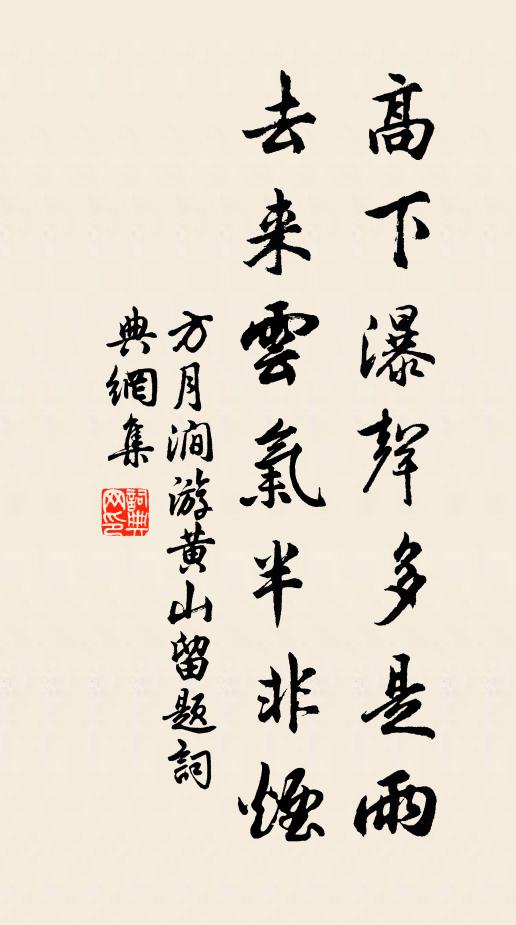 高下瀑聲多是雨
去来雲氣半非煙
方月澗游黄山留题詞
典網集
詞典网印